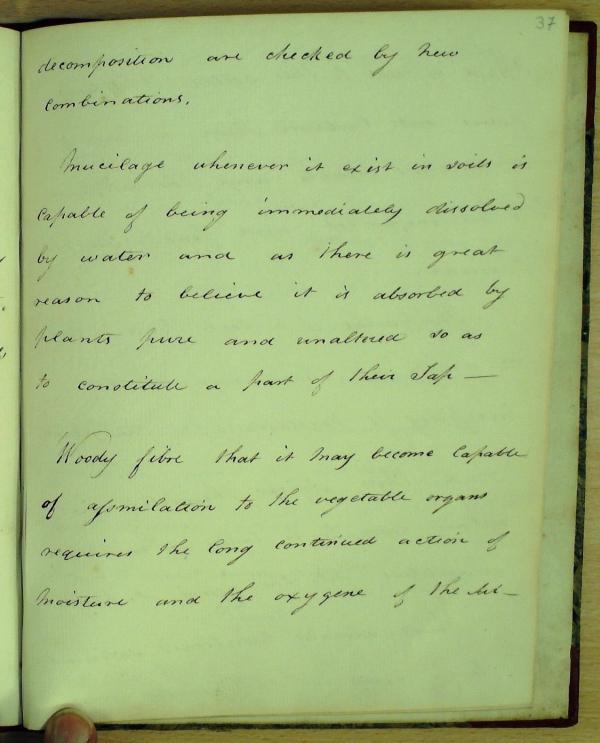 37
decomposition are checked by new
combinations.
Mucilage whenever it exist in soils is
capable of being immediately dissolved
by water and as there is great
reason to believe it is absorbed by
plants pure and unaltered so as
to constitute a part of their Sap —
Woody fibre that it may become capable
of assmilation to the vegetable organs
requires the long continued action of
moisture and the oxygene of the At-